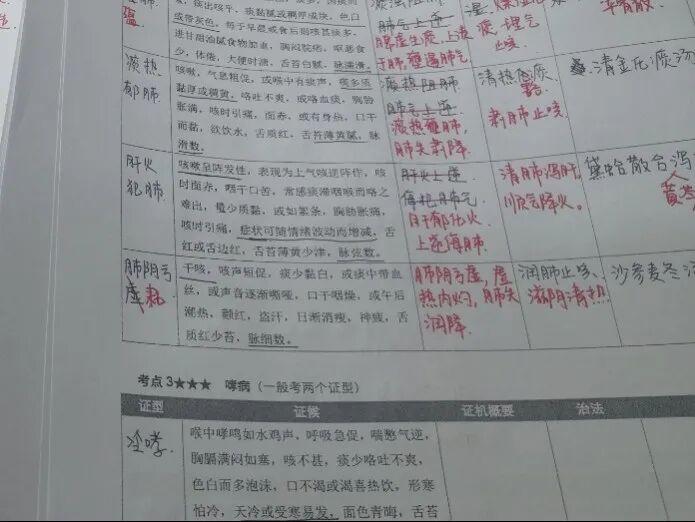 蕴
肺
咳声短促，痰少黏白，或痰中带血
发，接出咳平，痰黏腻或稠厚成块，色白
或带灰色，每于早晨或食后则咳甚痰多，
进甘甜油腻食物加重，胸闷脘痞，呕恶食
少，体倦，大便时溏，舌苔白腻，脉濡滑。
肺气上逆
脾虚生痰，上渍
于肺，壅遏肺气
止咳
痰热
郁肺
咳嗽，气息粗促，或喉中有痰声，痰多质
黏厚或稠黄，咯吐不爽，或咯血痰，胸胁
胀满，咳时引痛，面赤，或有身热，口干
而黏，欲饮水，舌质红，舌苔薄黄腻，脉
滑数。
痰热阻肺
肺气上逆
痰热壅肺，
肺失肃降
清热化痰
肃肺止咳
清金化痰汤
肝火
犯肺
咳嗽呈阵发性，表现为上气咳逆阵作，咳
时面赤，咽干口苦，常感痰滞咽喉而咯之
难出，量少质黏，或如絮条，胸胁胀痛，
咳时引痛，症状可随情绪波动而增减，舌
红或舌边红，舌苔薄黄少津，脉弦数。
肝火上逆
侮犯肺气
肝郁化火
上逆侮肺
清肺泻肝
顺气降火。
黛蛤散合泻
黄芩
肺阴亏
虚耗
干咳，咳声短促，痰少黏白，或痰中带血
丝，或声音逐渐嘶哑，口干咽燥，或午后
潮热，颧红，盗汗，日渐消瘦，神疲，舌
质红少苔，脉细数。
肺阴亏虚，虚
热内灼，肺失
润降
润肺止咳、
滋阴清热
沙参麦冬汤
考点 3★★★ 哮病（一般考两个证型）
证型 证候 证机概要 治法
冷哮
喉中哮鸣如水鸡声，呼吸急促，喘憋气逆，
胸膈满闷如塞，咳不甚，痰少咯吐不爽，
色白而多泡沫，口不渴或渴喜热饮，形寒
怕冷，天冷或受寒易发，面色青晦，舌苔